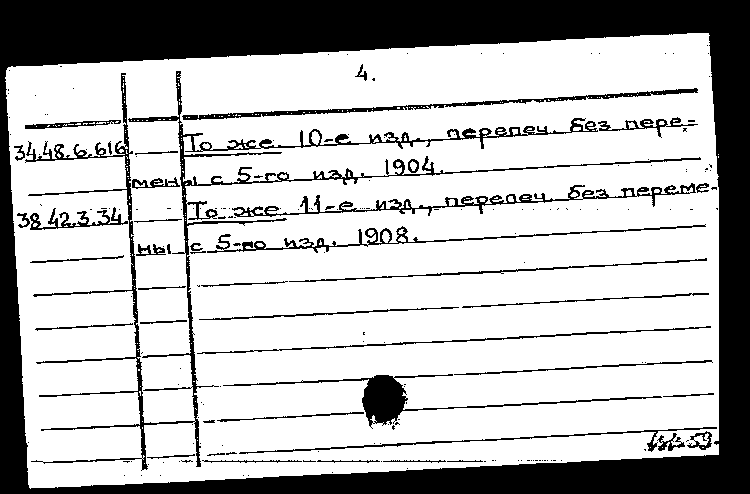 4.
34.48.6.616. То же. 10-е изд., перепеч. без пере-
мены с 5-го изд. 1904.
38.42.3.34. То же. 11-е изд., перепеч. без переме-
ны с 5-го изд. 1908.
59.